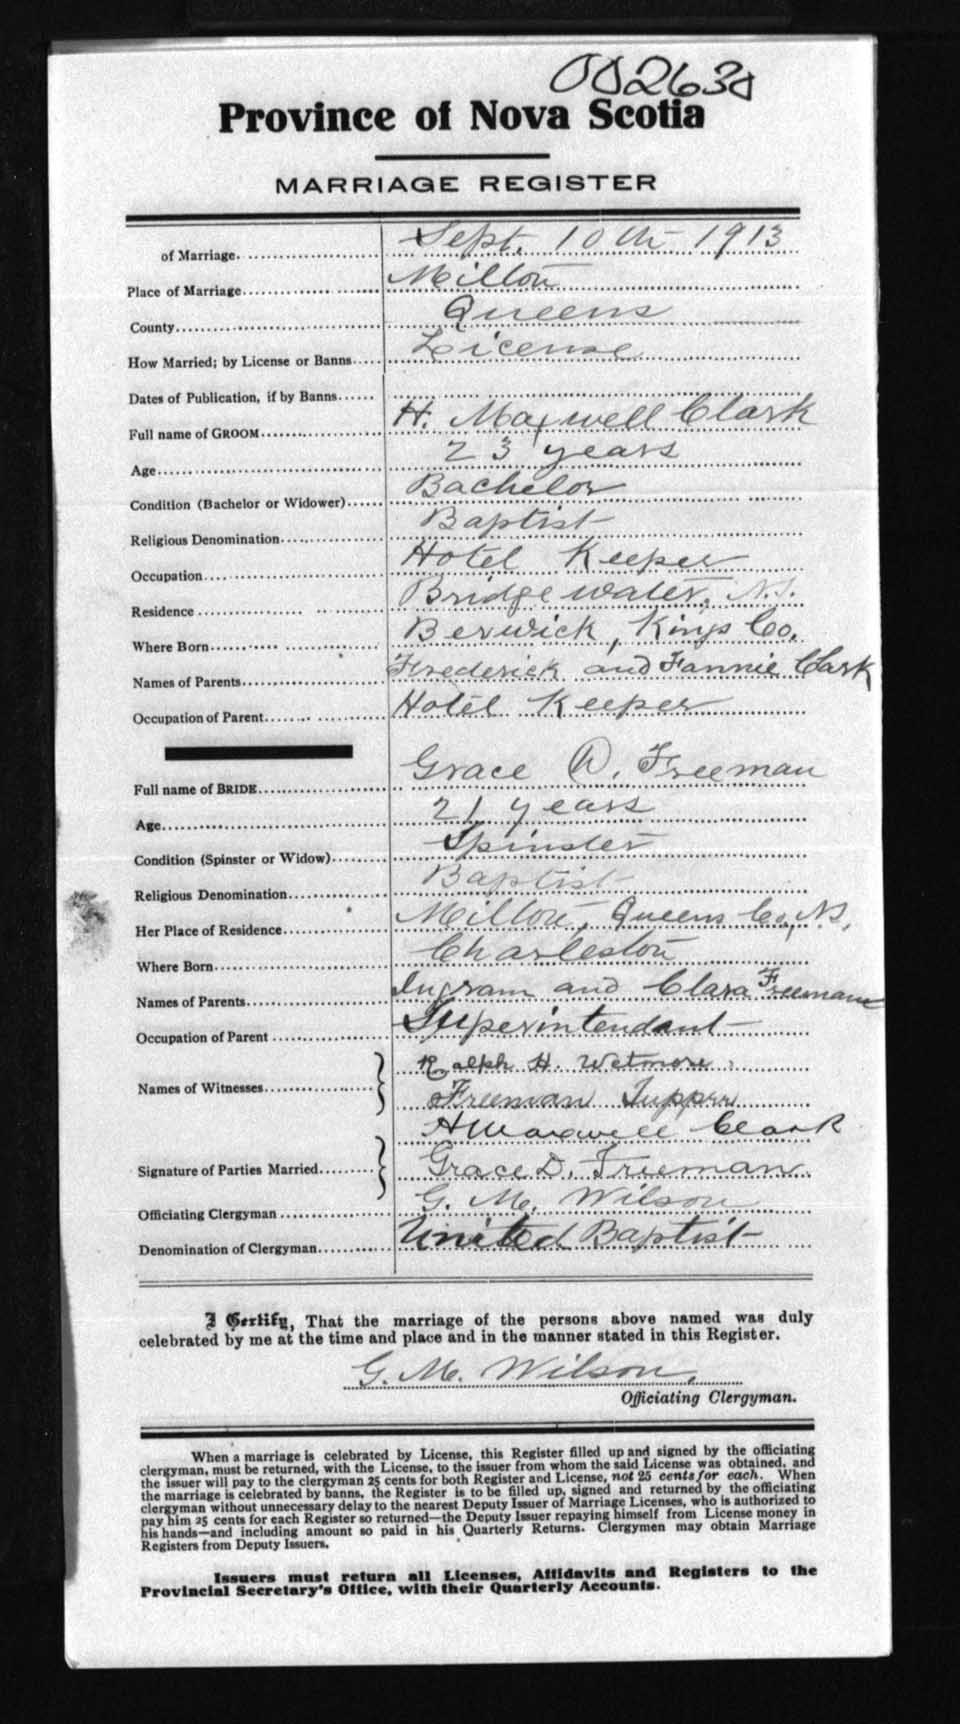 002630
Province of Nova Scotia
MARRIAGE REGISTER
of Marriage Sept. 10th 1913
Place of Marriage Milton
County Queens
How Married; by License or Banns License
Dates of Publication, if by Banns
Full name of GROOM H. Maxwell Clark
Age 23 years
Condition (Bachelor or Widower) Bachelor
Religious Denomination Baptist
Occupation Hotel Keeper
Residence Bridgewater, N.S.
Where Born Berwick, Kings Co.
Names of Parents Frederick and Fannie Clark
Occupation of Parent Hotel Keeper
Full name of BRIDE Grace D. Freeman
Age 21 years
Condition (Spinster or Widow) Spinster
Religious Denomination Baptist
Her Place of Residence Milton, Queens Co, N.S.
Where Born Charleston
Names of Parents Ingram and Clara Freeman
Occupation of Parent Superintendant
Names of Witnesses Ralph H. Wetmore
Freeman Tupper
H Maxwell Clark
Signature of Parties Married Grace D. Freeman
Officiating Clergyman G. M. Wilson
Denomination of Clergyman United Baptist
I Certify, That the marriage of the persons above named was duly
celebrated by me at the time and place and in the manner stated in this Register.
G. M. Wilson,
Officiating Clergyman.
When a marriage is celebrated by License, this Register filled up and signed by the officiating
clergyman, must be returned, with the License, to the issuer from whom the said License was obtained, and
the issuer will pay to the clergyman 25 cents for both Register and License, not 25 cents for each. When
the marriage is celebrated by banns, the Register is to be filled up, signed and returned by the officiating
clergyman without unnecessary delay to the nearest Deputy Issuer of Marriage Licenses, who is authorized to
pay him 25 cents for each Register so returned—the Deputy Issuer repaying himself from License money in
his hands—and including amount so paid in his Quarterly Returns. Clergymen may obtain Marriage
Registers from Deputy Issuers.
Issuers must return all Licenses, Affidavits and Registers to the
Provincial Secretary's Office, with their Quarterly Accounts.